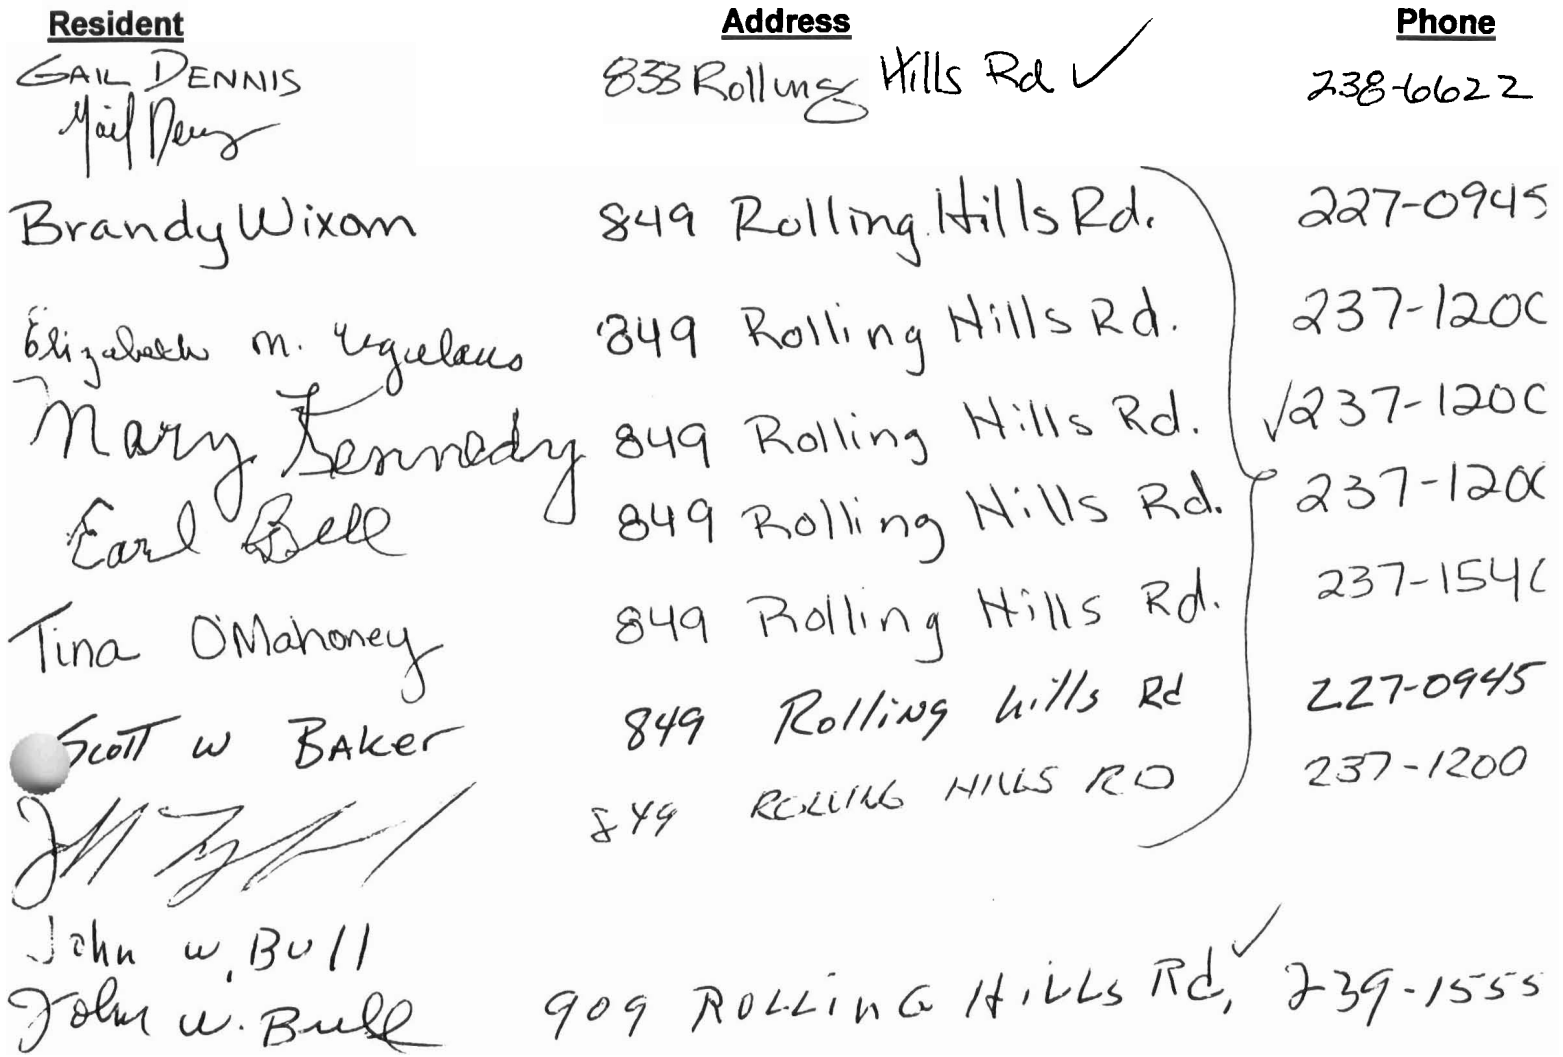 Resident Address Phone
GAIL DENNIS 833 Rolling Hills Rd ✓ 238-6622
Gail Dennis
Brandy Wixom 849 Rolling Hills Rd. 227-0945
Elizabeth M. 849 Rolling Hills Rd. 237-120
Mary Kennedy 849 Rolling Hills Rd. ✓237-120
Earl Bell 849 Rolling Hills Rd. 237-120
Tina O'Mahoney 849 Rolling Hills Rd. 237-154
Scott W BAKer 849 Rolling hills Rd 227-0945
849 ROLLING HILLS RD 237-1200
John W. Bull
John W. Bull 909 ROLLinG HiLLs Rd, ✓ 239-1555